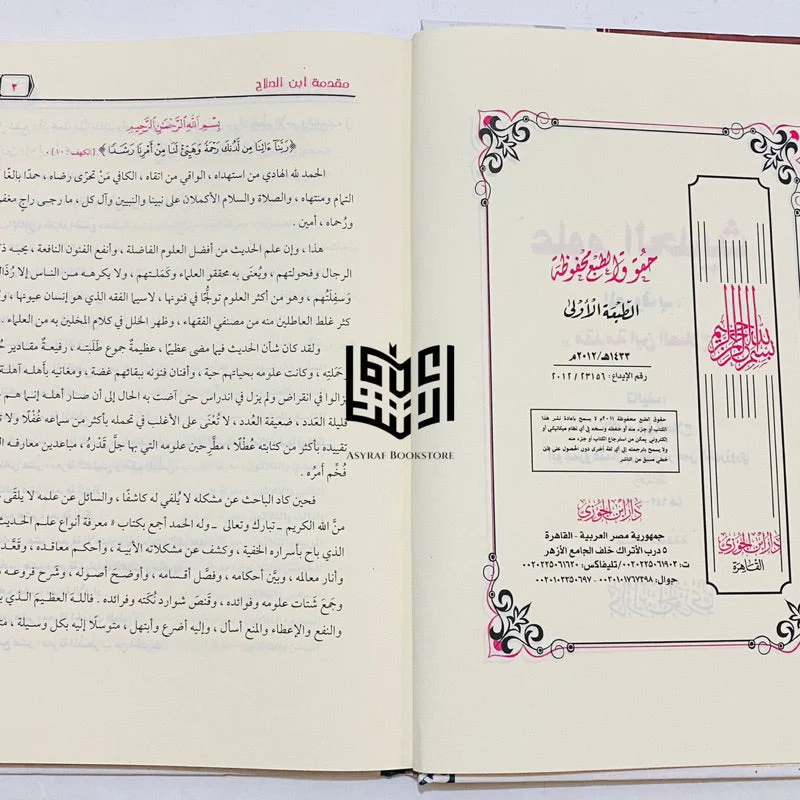 حقوق الطبع محفوظة
الطبعة الأولى
١٤٣٣هـ/٢٠١٢م
رقم الإيداع: ٢٠١٢/٢٣١٥٦
حقوق الطبع محفوظة ٢٠١١م لا يسمح بإعادة نشر هذا
الكتاب أو جزء منه أو حفظه ونسخه في أي نظام ميكانيكي أو
إلكتروني يمكن من استرجاع الكتاب أو جزء منه
ولا يسمح بترجمته إلى أي لغة أخرى دون الحصول على إذن
خطي مسبق من الناشر
دار ابن الجوزي
جمهورية مصر العربية - القاهرة
٥ درب الأتراك خلف الجامع الأزهر
ت: ٠٠٢٠٢٢٥٠٦١٩٠٣/تليفاكس: ٠٠٢٠٢٢٥٠٦١٦٢٠
جوال: ٠٠٢٠١٠١٧٦٧٣٩٨ - ٠٠٢٠١٠٣٣٥٠٦٩٧
بسم الله الرحمن الرحيم
دار ابن الجوزي
القاهرة
مقدمة ابن الصلاح
٣
بِسْمِ اللَّهِ الرَّحْمَٰنِ الرَّحِيمِ
﴿رَبَّنَآ ءَاتِنَا مِن لَّدُنكَ رَحْمَةً وَهَيِّئْ لَنَا مِنْ أَمْرِنَا رَشَدًا﴾ [الكهف: ١٠].
الحمد لله الهادي من استهداه، الواقي من اتقاه، الكافي مَنْ تحرّى رضاه، حمدًا بالغًا
التمام ومنتهاه، والصلاة والسلام الأكملان على نبينا والنبيين وآل كل، ما رجى راجٍ مغفر
ورُحماه، أمين.
هذا، وإن علم الحديث من أفضل العلوم الفاضلة، وأنفع الفنون النافعة، يحبه ذك
الرجال وفحولتهم، ويُعنَى به محققو العلماء وكَمَلتهم، ولا يكرهه من الناس إلا رُذَال
وَسِفْلَتُهم، وهو من أكثر العلوم تولُّجًا في فنونها، لاسيما الفقه الذي هو إنسان عيونها،
كثر غلط العاطلين منه من مصنفي الفقهاء، وظهر الخلل في كلام المخلين به من العلماء.
ولقد كان شأن الحديث فيما مضى عظيمًا، عظيمةً جموع طَلَبَتِه، رفيعةً مقادير
حَمَلَتِه، وكانت علومه بحياتهم حية، وأفنان فنونه ببقائهم غضة، ومغانيه بأهله آهلة
يزالوا في انقراض ولم يزل في اندراس حتى آضت به الحال إلى أن صار أهله إنما هم
قليلة العَدَد، ضعيفة العُدد، لا تُعْنَى على الأغلب في تحمله بأكثر من سماعه غُفْلًا ولا
تقييده بأكثر من كتابته عُطْلًا، مطَّرحين علومه التي بها جلَّ قَدْرُه، مباعدين معارفه
فُخِّم أمرُه.
فحين كاد الباحث عن مشكله لا يُلفي له كاشفًا، والسائل عن علمه لا يلقى
منَّ الله الكريم -تبارك وتعالى- وله الحمد أجمع بكتاب «معرفة أنواع علم الحديث
الذي باح بأسراره الخفية، وكشف عن مشكلاته الأبية، وأحكم معاقده، وقَعَّد
وأنار معالمه، وبيَّن أحكامه، وفصَّل أقسامه، وأوضح أصوله، وشَرح فروعه
وجَمَعَ شَتات علومه وفوائده، وقَنصَ شوارد نُكَته وفرائده. فالله العظيمَ الذي
والنفع والإعطاء والمنع أسأل، وإليه أضرع وأبتهل، متوسلًا إليه بكل وسيلة،
ASYRAF BOOKSTORE